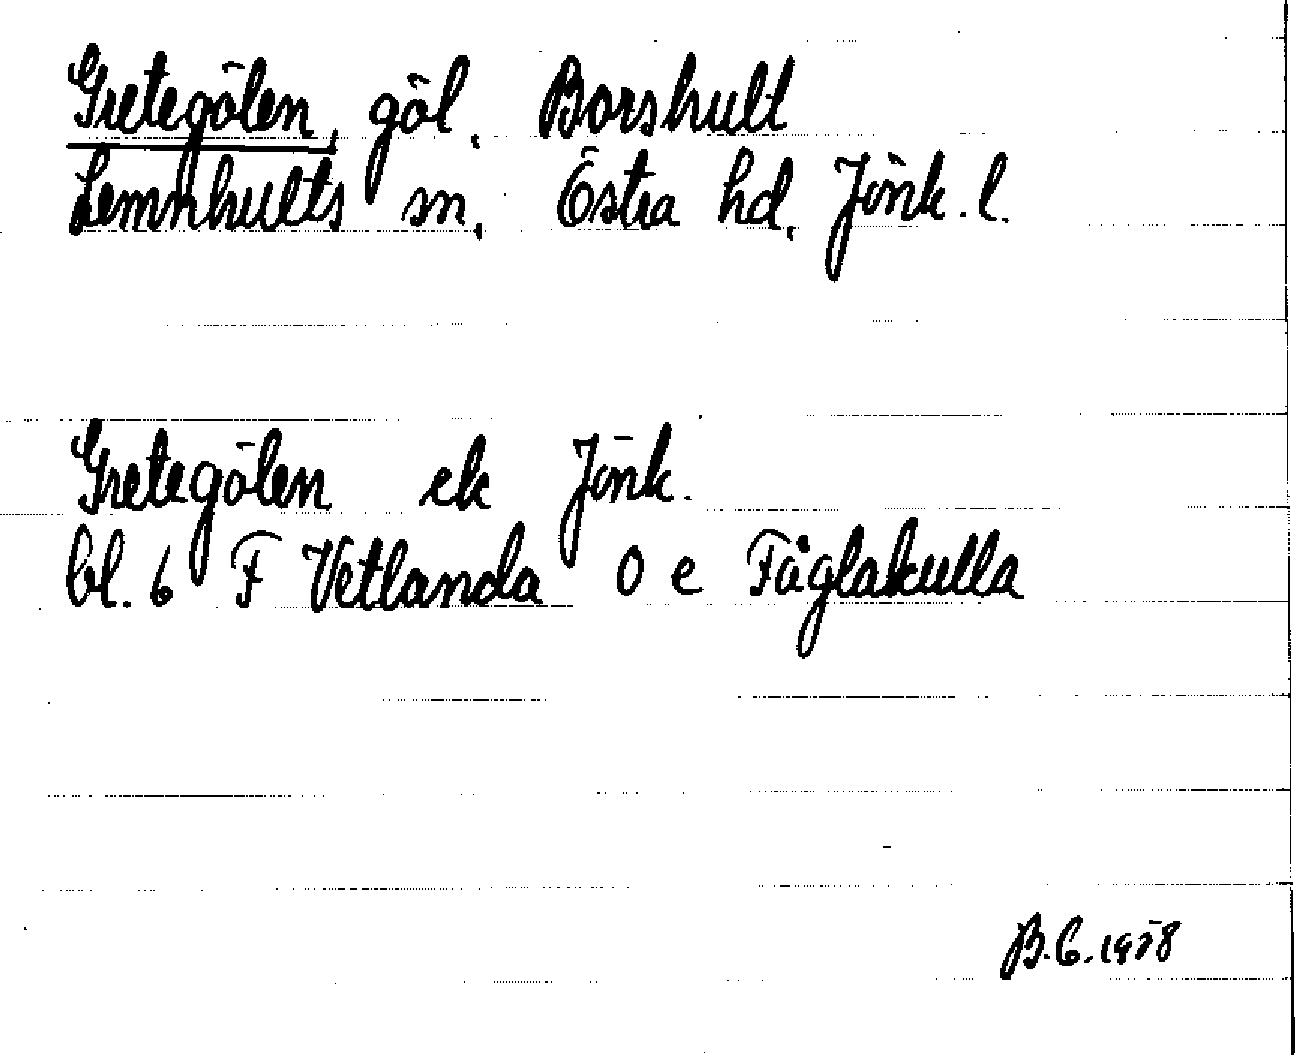 Gretegölen, göl. Borshult
Lemnhults sn, Östra hd, Jönk. l.
Gretegölen ek Jönk.
bl. 6 F Vetlanda O e Fåglakulla
B.G. 1958